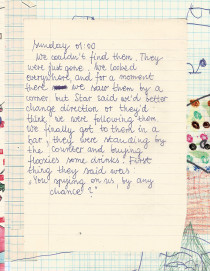 Sunday 01:00
We couldn't find them. They
were just gone. We looked
everywhere, and for a moment
there we saw them by a
corner but Star said we'd better
change direction or they'd
think we were following them.
We finally got to them in a
bar, they were standing by
the counter and buying
floozies some drinks. First
thing they said was
"You spying on us by any
chance?"